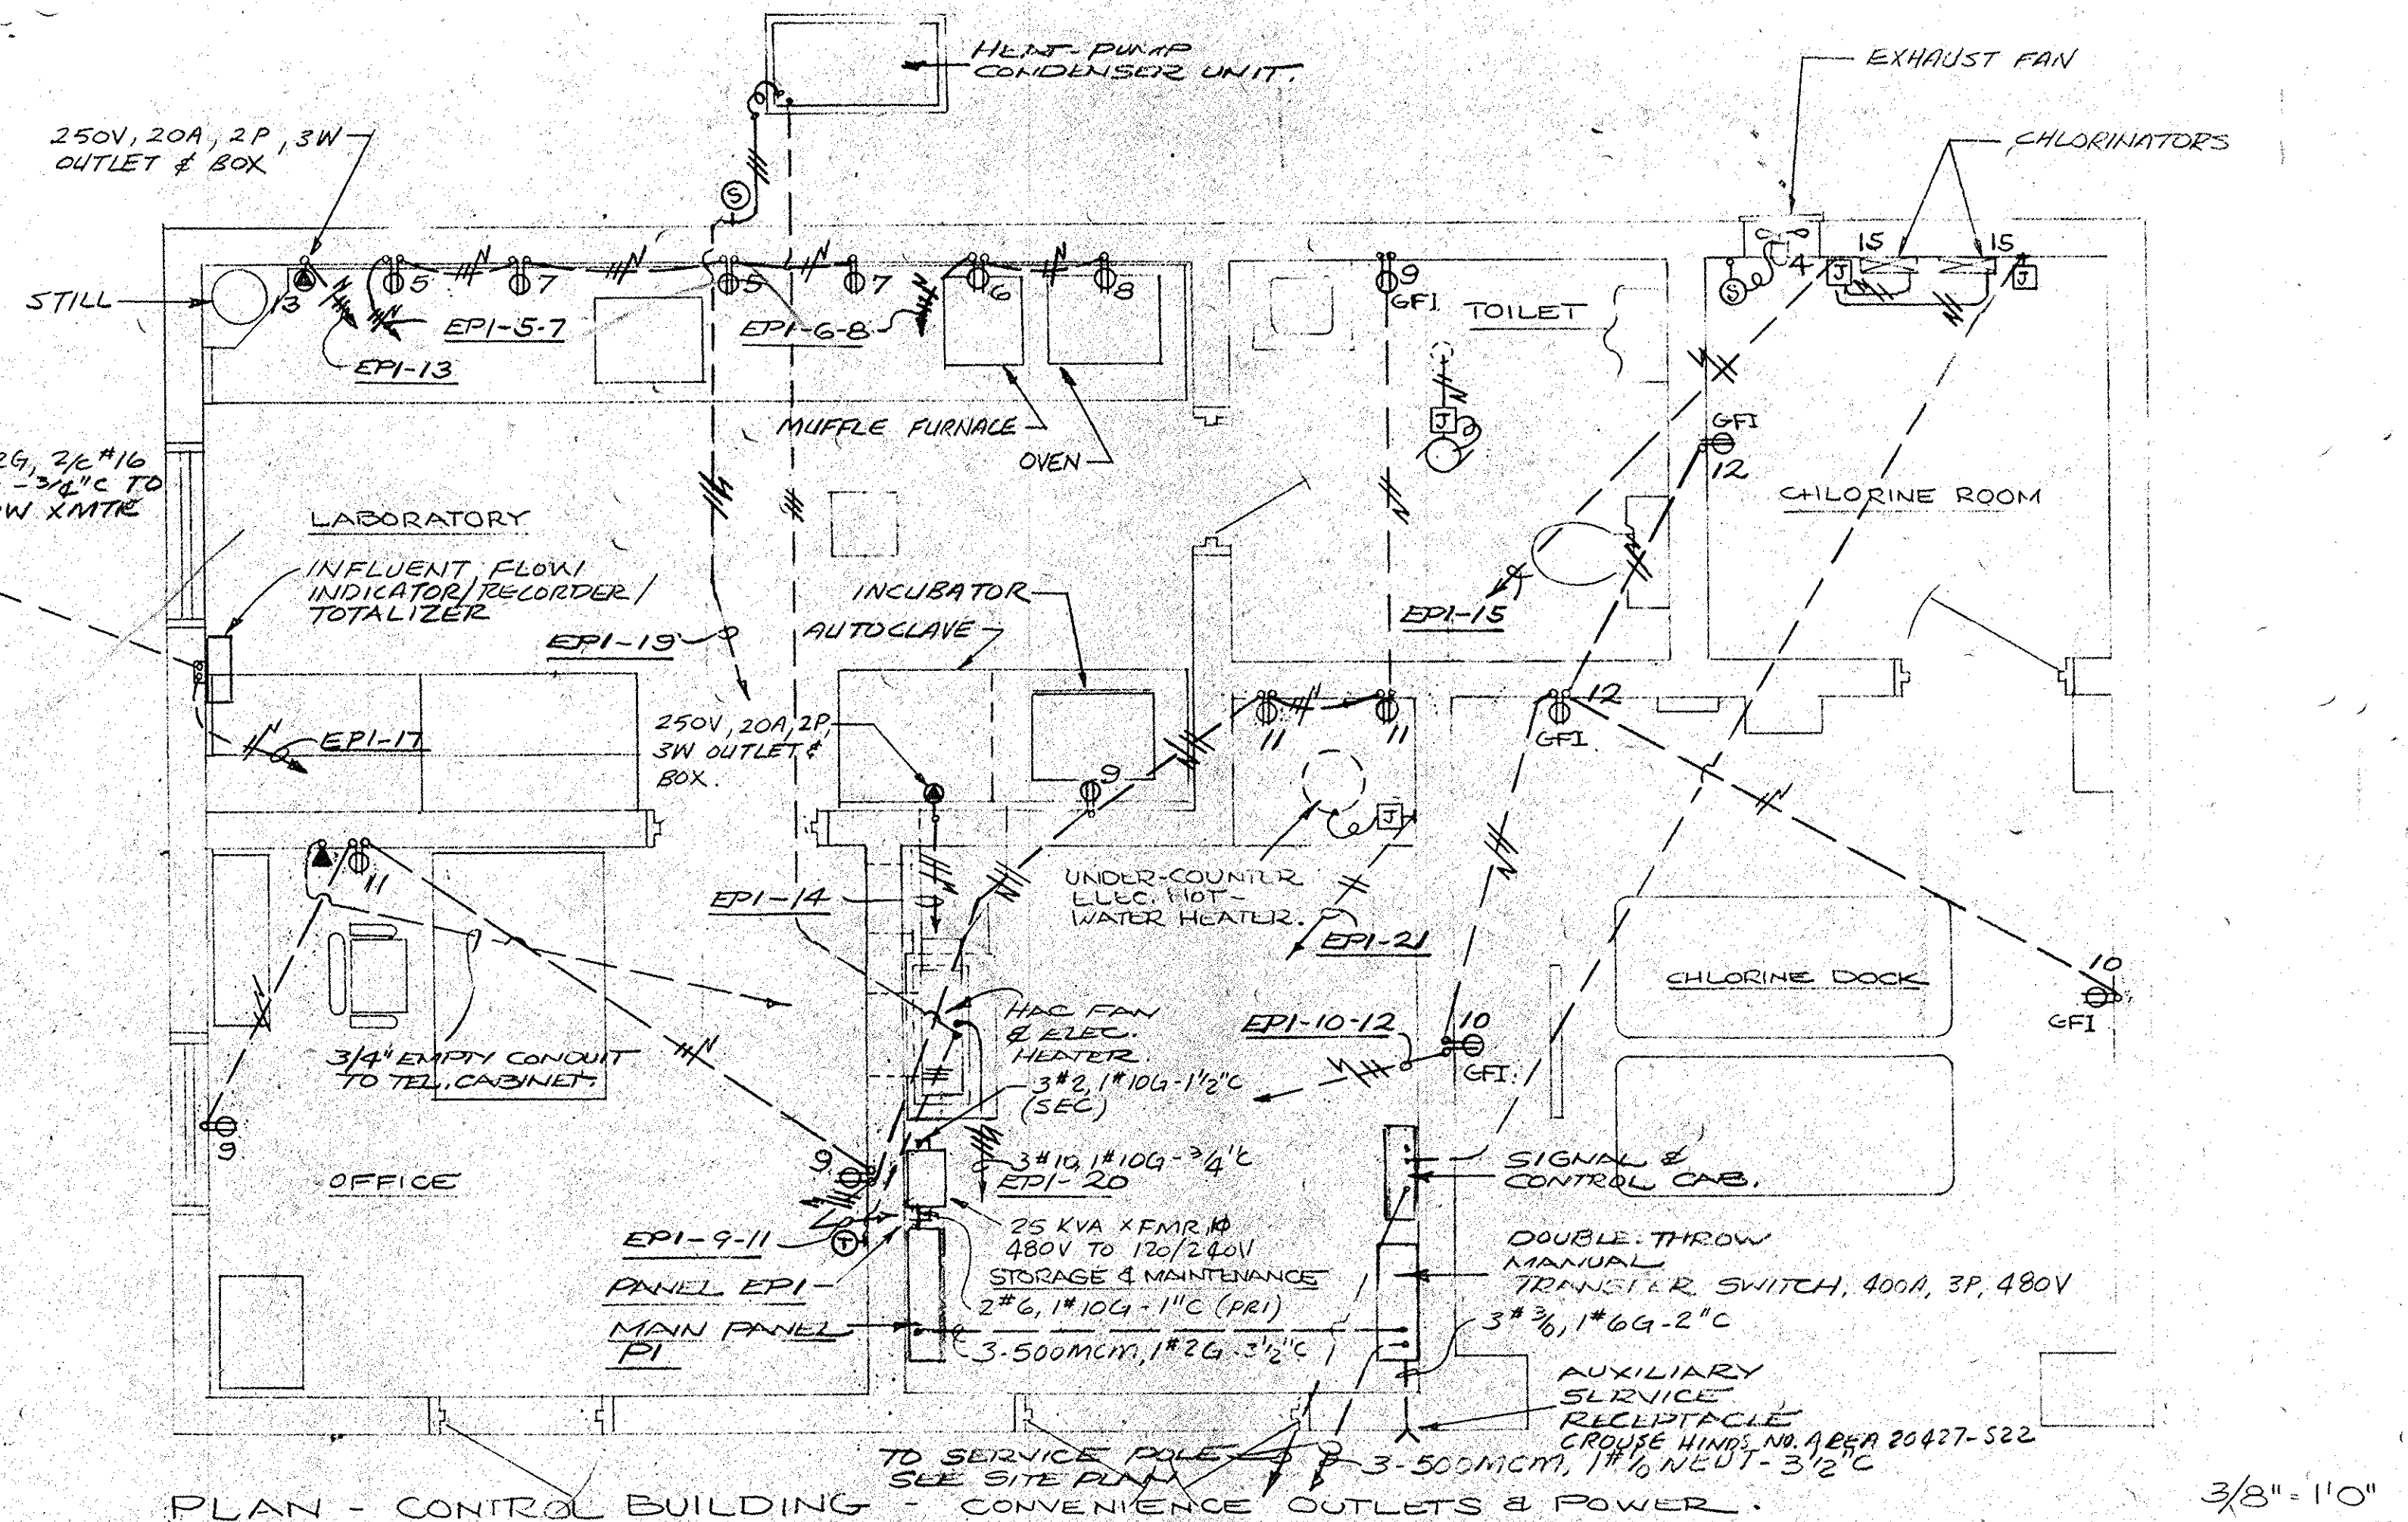 HEAT-PUMP
CONDENSER UNIT.
EXHAUST FAN
250V, 20A, 2P, 3W
OUTLET & BOX
CHLORINATORS
S
15
15
4
J
J
S
STILL
13
5
7
5
7
6
8
9
GFI
TOILET
EP1-5-7
EP1-6-8
EP1-13
MUFFLE FURNACE
OVEN
J
GFI
12
CHLORINE ROOM
2G, 2/C #16
- 3/4"C TO
XMTR
LABORATORY
INFLUENT FLOW
INDICATOR/RECORDER/
TOTALIZER
INCUBATOR
AUTOCLAVE
EP1-19
EP1-15
EP1-17
250V, 20A, 2P,
3W OUTLET &
BOX.
9
11
11
12
GFI
J
11
EP1-14
UNDER-COUNTER
ELEC. HOT-
WATER HEATER.
EP1-21
CHLORINE DOCK
10
GFI
HAC FAN
& ELEC.
HEATER.
EP1-10-12
10
GFI
3/4" EMPTY CONDUIT
TO TEL. CABINET.
3#2, 1#10G-1½"C
(SEC)
9
9
OFFICE
3#10, 1#10G-3/4"C
EP1-20
SIGNAL &
CONTROL CAB.
EP1-9-11
T
25 KVA XFMR, 1Φ
480V TO 120/240V
STORAGE & MAINTENANCE
DOUBLE THROW
MANUAL
TRANSFER SWITCH, 400A, 3P, 480V
PANEL EP1
2#6, 1#10G-1"C (PRI)
MAIN PANEL
P1
3-500MCM, 1#2G-3½"C
3#3/0, 1#6G-2"C
AUXILIARY
SERVICE
RECEPTACLE
CROUSE HINDS NO. AREA 20427-S22
TO SERVICE POLE
SEE SITE PLAN
3-500MCM, 1#1/0 NEUT-3½"C
PLAN - CONTROL BUILDING - CONVENIENCE OUTLETS & POWER.
3/8"=1'0"